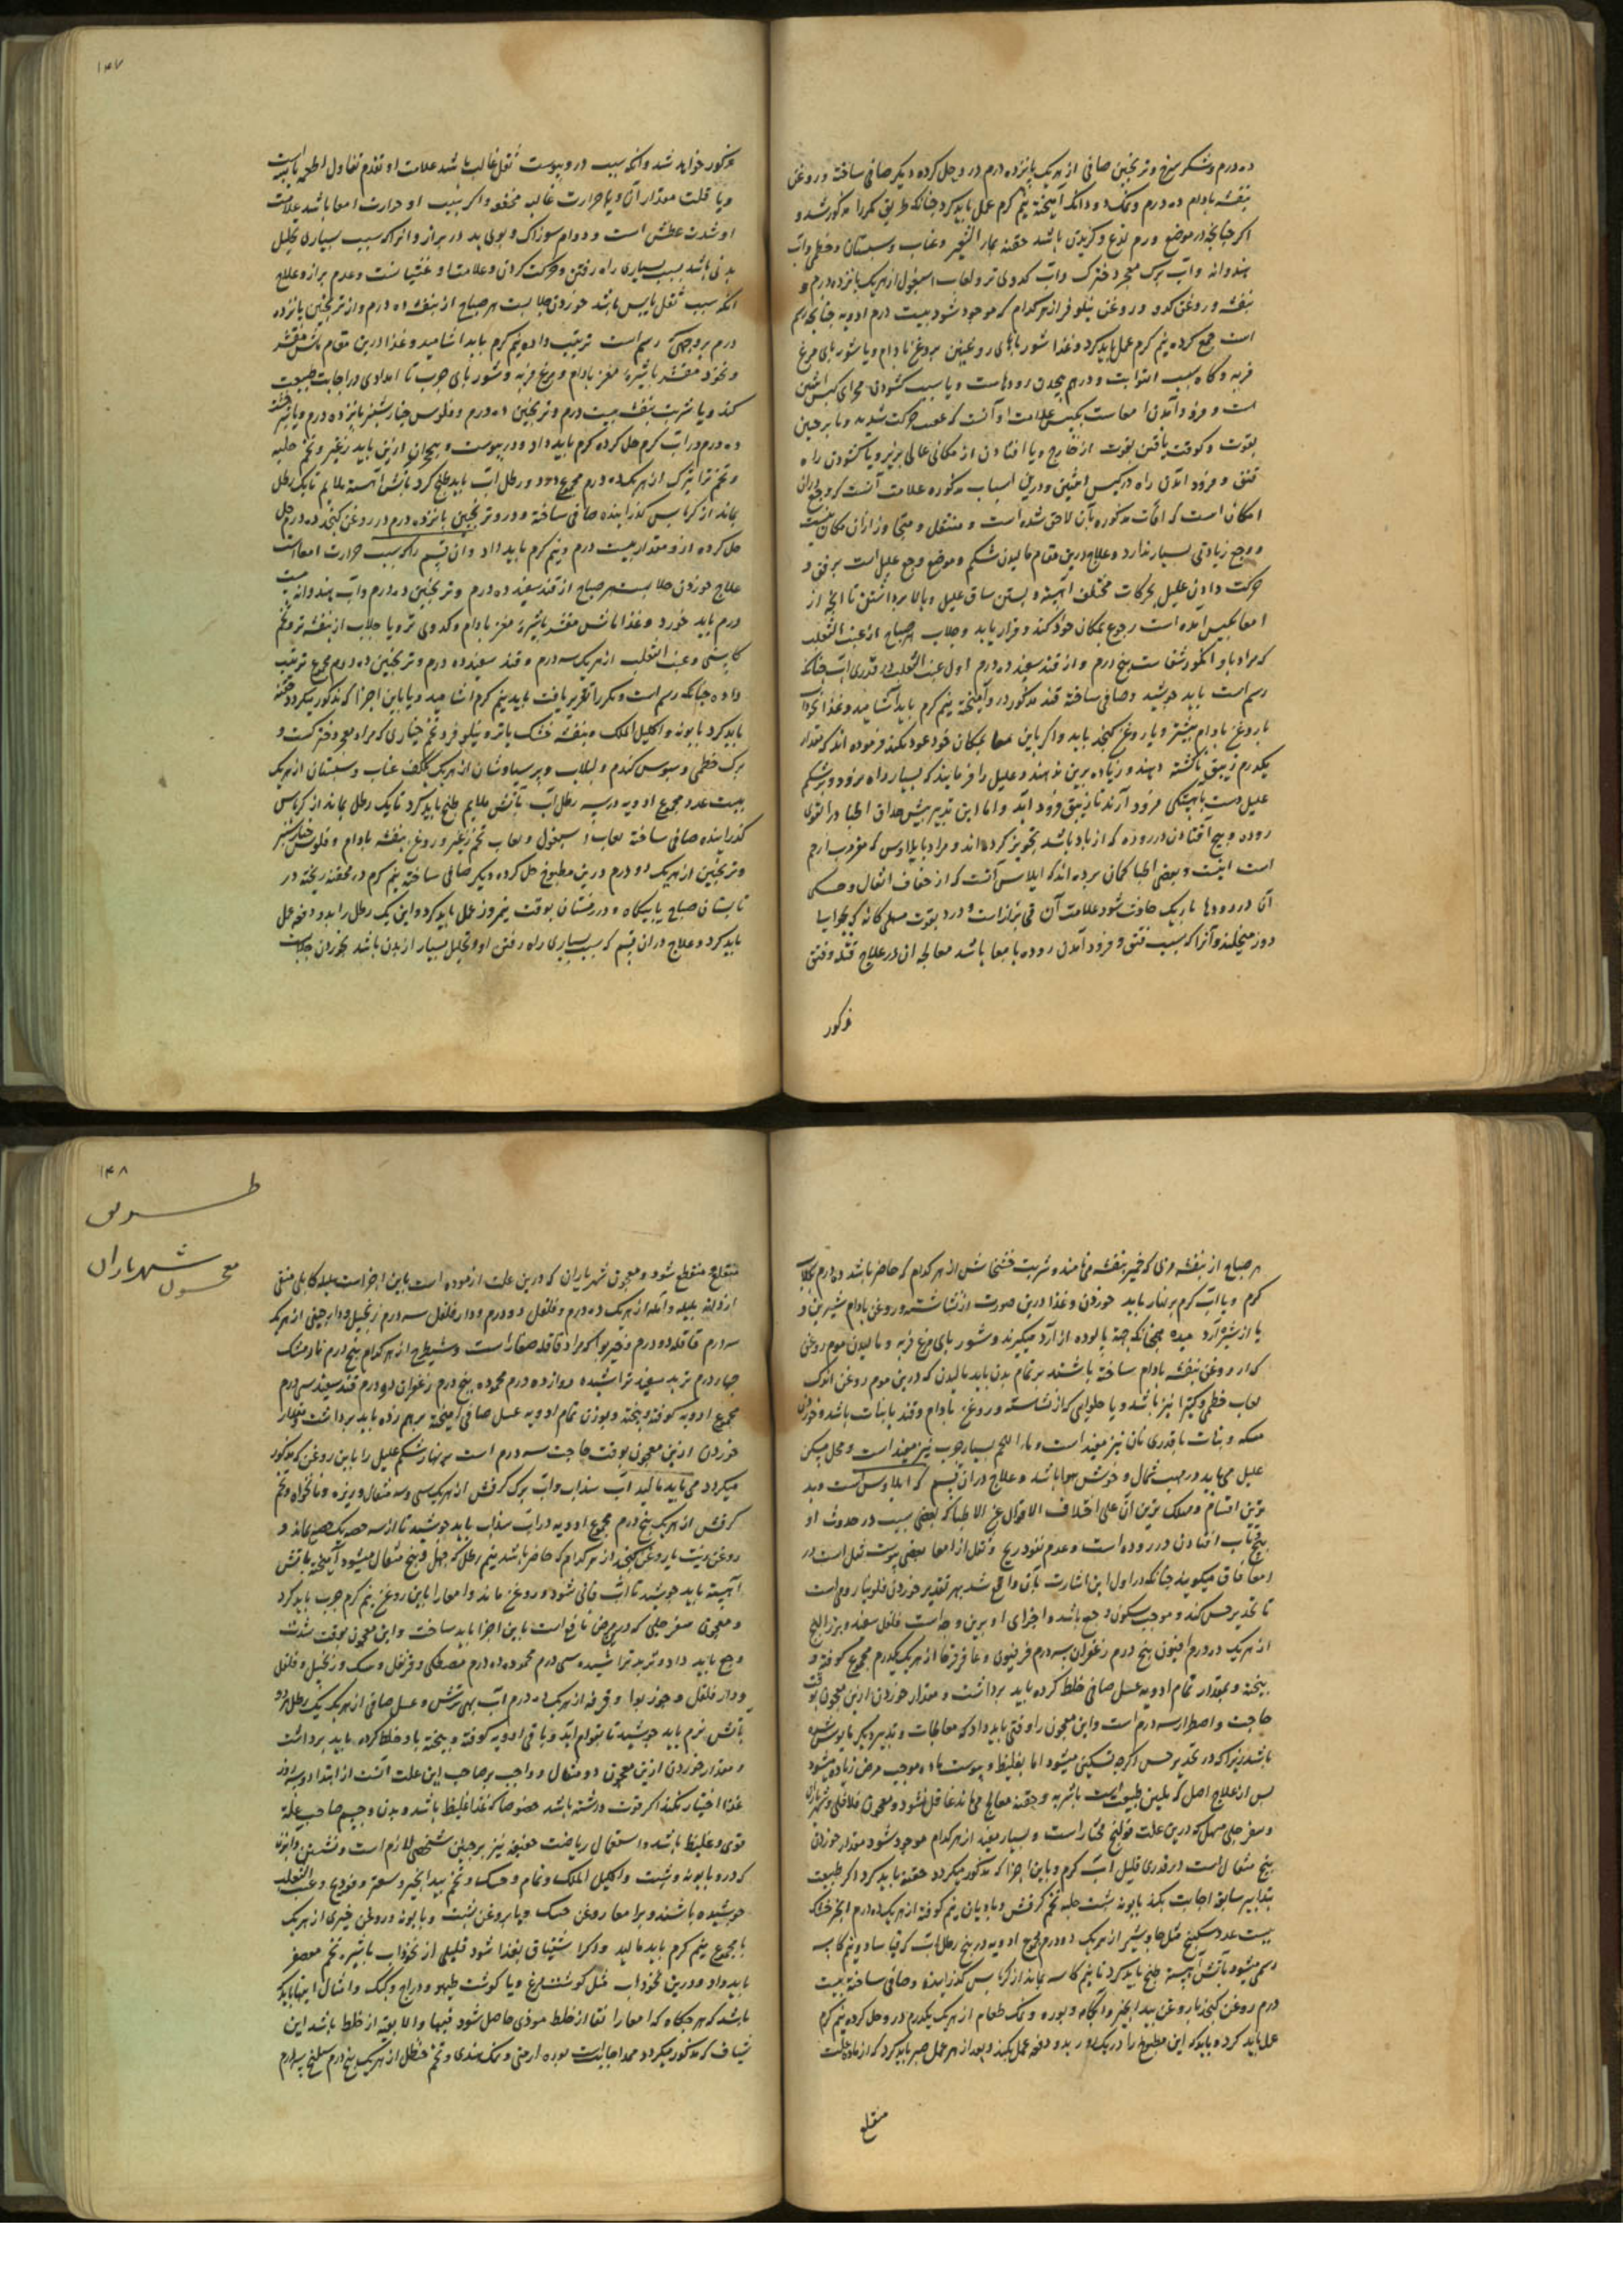 ده درم و شکر سرخ و ترنجبین صافی از هر یک پانزده درم در و حل کرده دیگر صافی ساخته و روغن
بنفشه بادام ده درم و نمک دو دانگ آمیخته نیم کرم عمل باید کرد چنانکه طریق مکررا مذکور شد و
اکر چنانچه در موضع ورم لذع و کزیدن باشد حقنه بماء الشعیر و عناب و سبستان و خطمی و آب
هندوانه و آب برک معجر دخترک و آب کدوی تر و لعاب اسبغول از هر یک پانزده درم و
بنفشه و روغن کدو و روغن نیلوفر از هر کدام که موجود شود بیست درم ادویه چنانچه رسم
است جمع کرده نیم کرم عمل باید کرد و غذا شورباهای روغنین بروغن بادام و یا شوربای مرغ
فربه و کاه سبب التوا و در هم پیچیدن رودهاست و یا سبب کشودن مجرای کیس انثیین
است و فرود آمدن امعاست بکیس علامت او آنست که عقب حرکت شدید و یا بر جستن
بقوت و کوفت یافتن بقوت از خارج و یا افتادن از مکانی عالی بزیر و یا کشودن راه
فتق و فرود آمدن راه در کیس انثیین و درین اسباب مذکوره علامت آنست که وجع در ان
امکان است که آفات مذکوره بآن لاحق شده است و منتقل و متجاوز از آن مکان نیست
و وجع زیادتی بسیار ندارد و علاج درین مقام مالیدن شکم و موضع وجع علیل است برفق و
حرکت دادن علیل بحرکات مختلف آهسته و بستن ساق علیل و بالا برداشتن تا آنچه از
امعا بکیس آمده است رجوع بمکان خود کند و قرار یابد و جلاب هر صباح از عنب الثعلب
که مراد باو انکور شفاست پنج درم و از قند سفید ده درم اول عنب الثعلب در قدری آب چنانکه
رسم است باید جوشید و صافی ساخته قند مذکور در و آمیخته نیم کرم باید آشامید و غذا نخوداب
با روغن بادام بیشتر و یا روغن کنجد باید و اکر باین معا بمکان خود عود نکند فرموده اند که مقدار
یکدرم زیبق ناکشته دهند و زیاده برین ندهند و علیل را فرمایند که بسیار راه برود و بر شکم
علیل دست بآهستکی فرود آرند تا زیبق فرود آید و اما این تدبیر پیش حذاق اطبا در التوای
روده و پیچ افتادن در روده که از باد باشد تجویز کرده اند و مراد بایلاوس که مؤدب ارحم
است اینست و بعضی اطبا کمان برده اند که ایلاوس آنست که از جفاف اثفال و خشکی
آن در رودها باریک حادث شود علامت آن قی براز است و درد بقوت مسلی کانه که بجوالها
دوز میخلند و آنرا که سبب فتق و فرود آمدن روده یا معا باشد معالجه آن در علاج قیله و فتق
مذکور
۱۴۷
مذکور خواهد شد و آنکه سبب در و یبوست ثفل غالب باشد علامت او تقدم تناول اطعمه یابسه است
و یا قلت مقدار آن و یا حرارت غالبه مجففه و اکر سبب او حرارت امعا باشد علامت
او شدت عطش است و دوام سوزاک و بوی بد در براز و آنرا که سبب بسیاری تحلیل
بدنی باشد بسبب بسیاری راه رفتن و حرکت کردن و علامات او غثیانست و عدم براز و علاج
آنکه سبب ثفل یابس باشد خوردن جلابست هر صباح از بنفشه ده درم و از ترنجبین پانزده
درم بر وجهی که رسم است ترتیب داده نیم کرم باید آشامید و غذا درین مقام ماش مقشر
و نخود مقشر باشیره مغز بادام و مرغ فربه و شورباهای چرب تا امدادی در اجابت طبیعت
کند و یا شربت بنفشه بیست درم و ترنجبین ده درم و فلوس خیارشنبر پانزده درم و یا شیرخشت
ده درم در آب کرم حل کرده کرم باید داد و در یبوست و هیجان ازین باید زنجیر و تخم حلبه
و تخم ترا تیزک از هر یک ده درم مجموع در دو رطل آب باید طبخ کرد بآتش آهسته ملایم تا یک رطل
بماند از کرباس کذرانیده صافی ساخته و درو ترنجبین پانزده درم در روغن کنجد ده درم حل
حل کرده ازو مقدار بیست درم و نیم کرم باید داد و آن قسم را که سبب حرارت امعاست
علاج خوردن جلابست هر صباح از قند سفید ده درم و ترنجبین ده درم و آب هندوانه بیست
درم باید خورد و غذا ماش مقشر باشیره مغز بادام و کدوی تر و یا جلاب از بنفشه تر و تخم
کاسنی و عنب الثعلب از هر یک سه درم و قند سفید ده درم و ترنجبین ده درم مجموع ترتیب
داده چنانکه رسم است و مکررا تقریر یافت باید نیم کرم آشامید و یا باین اجزا که مذکور میکردد حقنه
باید کرد بابونه و اکلیل الملک و بنفشه خشک یا تر و نیلوفر و تخم خیاری که مراد معجر دخترکست و
برک خطمی و سبوس کندم و لبلاب و پرسیاوشان از هر یک یک کف عناب و سبستان از هر یک
بیست عدد مجموع ادویه در سه رطل آب بآتش ملایم طبخ باید کرد تا یک رطل بماند از کرباس
کذرانیده صافی ساخته لعاب اسبغول و لعاب تخم زغیر و روغن بنفشه بادام و فلوس خیارشنبر
و ترنجبین از هر یک ده درم درین مطبوخ حل کرده دیکر صافی ساخته نیم کرم در محقنه ریخته در
تابستان صباح یا بیکاه و در زمستان بوقت نیمروز عمل باید کرد و این یک رطل را بدو دفعه عمل
باید کرد و علاج در آن قسم که سبب بسیاری راه رفتن او و تحلیل بسیار از بدن باشد بخوردن جلابست
هر صباح از بنفشه مربی که خمیر بنفشه می نامند و شربت خشخاش از هر کدام که حاضر باشد ده درم بکلاب
کرم و یا آب کرم بر نهار باید خوردن و غذا درین صورت از نشاسته و روغن بادام شیرین و
یا از شیر آرد میده همچنانکه جهة پالوده از آرد میکیرند و شوربای مرغ فربه و مالیدن موم روغنی
که از روغن بنفشه بادام ساخته باشند بر تمام بدن باید مالیدن که درین موم روغن اندک
لعاب خطمی و کتیرا نیز باشد و یا حلوایی که از نشاسته و روغن بادام و قند یا نبات باشد و خوردن
مسکه و نبات با قدری نان نیز مفید است و ماء اللحم بسیار چرب نیز مفید است و محل مسکن
علیل می باید در مهب شمال و خوش هوا باشد و علاج در آن قسم که ایلاوس است و بد
ترین اقسام و مهلک ترین آن علی اختلاف الاقوال عن الاطبا که بعضی سبب در حدوث او
پیچ تاب افتادن در روده است و عدم نفوذ ریح و ثفل از امعا بعضی یبوست ثفل است در
امعا دقاق میکویند چنانکه در اول این اشارت بآن واقع شد بهر تقدیر خوردن فلونیا رومی است
تا تخدیر حس کند و موجب سکون وجع باشد و اجزای او برین وجه است فلفل سفید و بزر البنج
از هر یک ده درم افیون پنج درم زعفران سه درم فرفیون و عاقرقرحا از هر یک یکدرم مجموع کوفته و
بیخته و بمقدار تمام ادویه عسل صافی خلط کرده باید برداشت و مقدار خوردن ازین معجون بوقت
حاجت و اضطرار سه درم است و این معجون را وقتی باید داد که معالجات و تدبیر دیکر مأیوس شده
باشند زیرا که در تخدیر حس اکرچه تسکینی میشود اما بغلیظ و یبوست ماده موجب مرض زیاده میشود
پس از علاج اصل که تلیین طبیعت است باشربه و حقنه معالج می باید غافل نشود و معجون فلافلی و شهریاران
و سفرجلی مسهل که درین علت قولنج مختار است و بسیار مفید از هر کدام موجود شود مقدار خوردن
پنج مثقال است در قدری قلیل آب کرم و باین اجزا که مذکور میکردد حقنه باید کرد اکر طبیعت
بتدابیر سابقه اجابت نکند بابونه شبت حلبه تخم کرفس و بادیان نیم کوفته از هر یک ده درم انجیر خشک
بیست عدد سکبینج مقل جاوشیر از هر یک ده درم مجموع ادویه در پنج رطل آب که قیاسا دو نیم کاسه
رسمی میشود بآتش آهسته طبخ باید کرد تا نیم کاسه بماند از کرباس کذرانیده و صافی ساخته بیست
درم روغن کنجد یا روغن بید انجیر و آبکامه و بوره و نمک طعام از هر یک یکدرم در و حل کرده نیم کرم
عمل باید کرد باید که این مطبوخ را در یک روز بدو دفعه عمل بکند و بعد از هر عمل صبر باید کرد که از ماده علت
منقلع
۱۴۸
طریق
معجون
شهریاران
منقلع و منقطع شود و معجون شهریاران که درین علت آزموده است باین اجزاست هلیله کابلی منقی
از دانه بلیله و آمله از هر یک ده درم و فلفل دو درم و دار فلفل سه درم زنجبیل و دارچینی از هر یک
سه درم قاقله دو درم و خیربوا که مراد قاقله صغار است و شیطرج از هر کدام پنج درم نارمشک
چهار درم تربد سفید تراشیده دوازده درم محموده پنج درم زعفران دو درم قند سفید سی درم
مجموع ادویه کوفته و بیخته و بوزن تمام ادویه عسل صافی آمیخته بر هم زده باید برداشت و مقدار
خوردن ازین معجون بوقت حاجت سه درم است بر نهار شکم علیل را باین روغن که مذکور
میکردد می باید مالید آب سذاب و آب برک کرفس از هر یک سی و سه مثقال و زیره و نانخواه و تخم
کرفس از هر یک پنج درم مجموع ادویه در آب سذاب باید جوشید تا از سه حصه یک حصه بماند و
روغن زیت یا روغن کنجد از هر کدام که حاضر باشد نیم رطل که چهل و پنج مثقال میشود آمیخته بآتش
آهسته باید جوشید تا آب فانی شود و روغن ماند و امعا را باین روغن نیم کرم چرب باید کرد
و معجون سفرجلی که درین مرض نافع است باین اجزا باید ساخت و این معجون بوقت شدت
وجع باید داد و تربد تراشیده سی درم محموده ده درم مصطکی و قرنفل و مسک و زنجبیل و فلفل
و دار فلفل و جوز بوا و قرفه از هر یک ده درم آب بهی ترش و عسل صافی از هر یک یک رطل هر دو
بآتش نرم باید جوشید تا بقوام آید و باقی ادویه کوفته و بیخته باو خلط کرده باید برداشت
و مقدار خوردن ازین معجون دو مثقال و واجب بر صاحب این علت آنست از ابتدا دو سه روز
غذا اختیار نکند اکر قوت داشته باشد خصوصا که غذا غلیظ باشد و بدن و جسم صاحب علة
قوی و غلیظ باشد و استعمال ریاضت خفیفه نیز بر چنین شخصی لازم است و نشستن در آبزن
که درو بابونه و شبت و اکلیل الملک و نمام و حسک و تخم بید انجیر و سعتر و فودنج و عنب الثعلب
جوشیده باشند و بر امعا روغن حسک و یا بروغن شبت و بابونه و روغن خیری از هر یک
یا مجموع نیم کرم باید مالید و اکر اشتیاق بغذا شود قلیلی از نخوداب باشیره تخم معصفر
باید داد و درین نخوداب مثل کوشت مرغ و یا کوشت طیهو و دراج و کبک و امثال اینها باید که
باشد که هر چکاه که امعا را نقا از خلط موذی حاصل شود فبها و الا بقیه از خلط باشد این
شیاف که مذکور میکردد ممد اجابتست بوره ارمنی و نمک هندی و تخم حنظل از هر یک پنج درم سکبینج سه درم